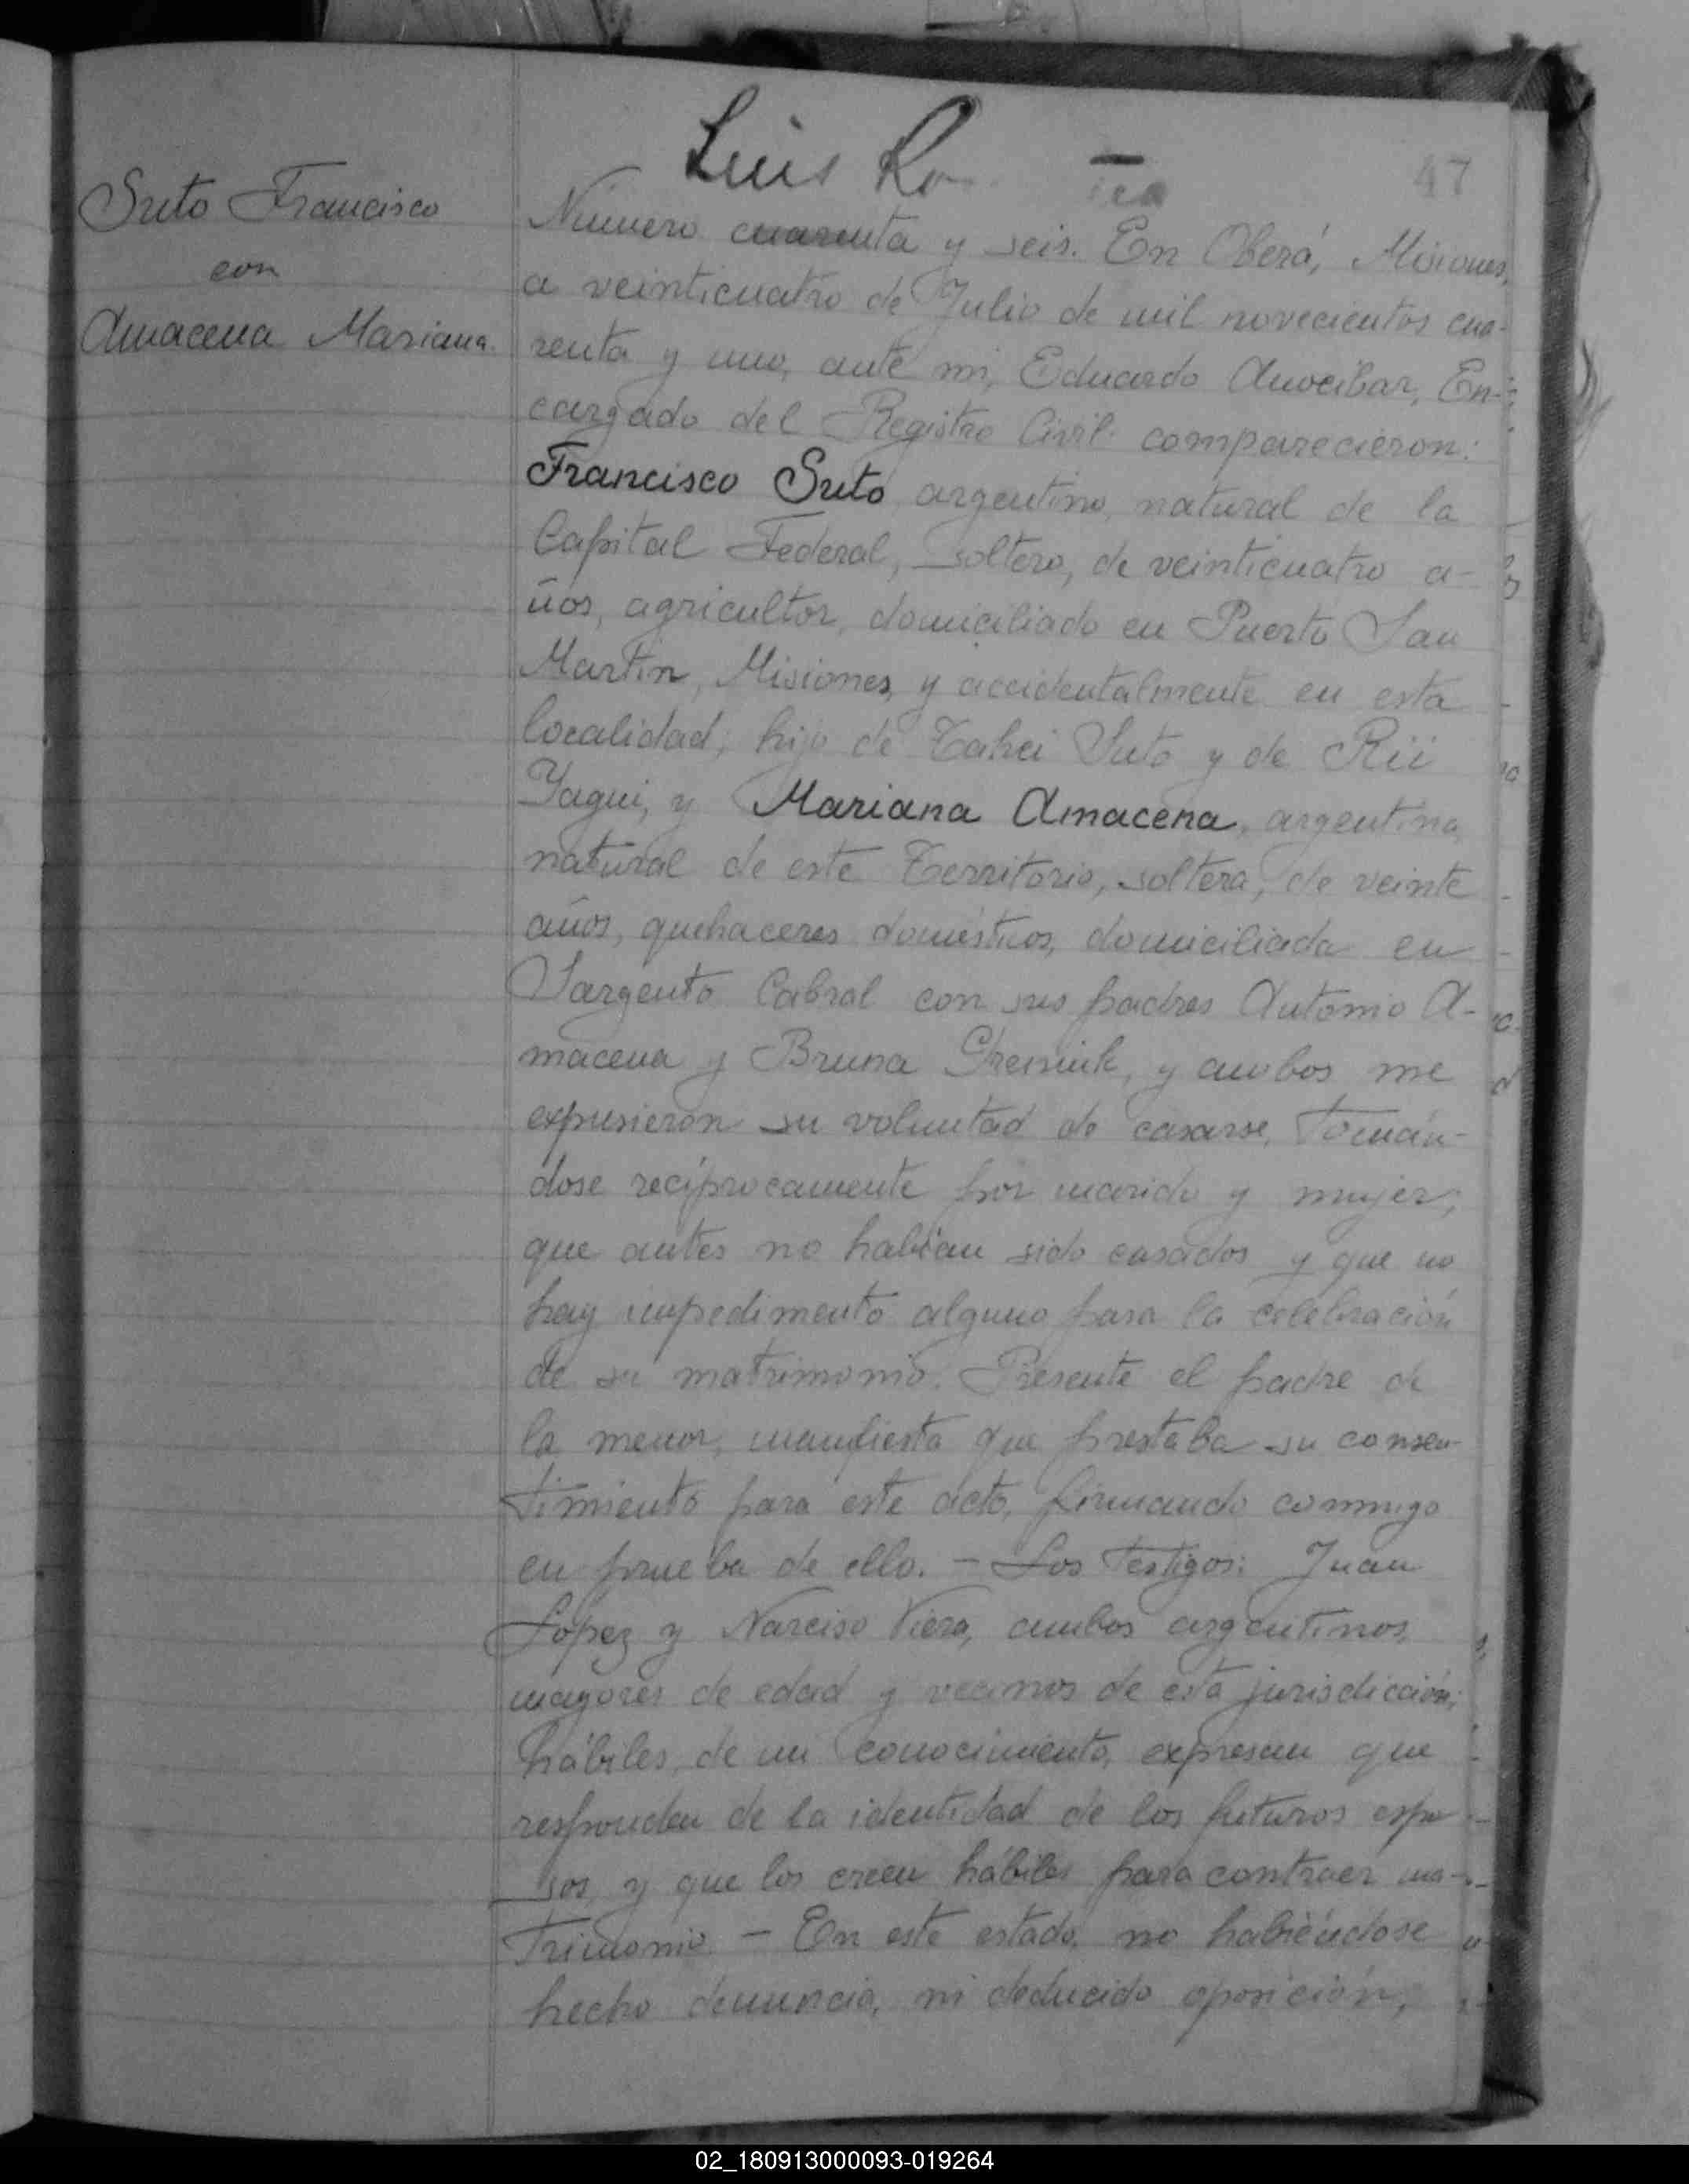 Luis Ro
47
Suto Francisco
con
Amacena Mariana.
Número cuarenta y seis. En Oberá, Misiones,
a veinticuatro de Julio de mil novecientos cua-
renta y uno, ante mi, Eduardo Anocibar, En-
cargado del Registro Civil comparecieron:
Francisco Suto argentino, natural de la
Capital Federal, soltero, de veinticuatro a-
ños, agricultor, domiciliado en Puerto San
Martin, Misiones, y accidentalmente en esta
localidad; hijo de Tahei Suto y de Rii
Yagui, y Mariana Amacena, argentina,
natural de este Territorio, soltera, de veinte
años, quehaceres domésticos, domiciliada en
Sargento Cabral con sus padres Antonio A-
macena y Bruna, y ambos me
expusieron su voluntad de casarse, tomán-
dose recíprocamente por marido y mujer;
que antes no habían sido casados y que no
hay impedimento alguno para la celebración
de su matrimonio. Presente el padre de
la menor, manifiesta que prestaba su consen-
timiento para este acto, firmando conmigo
en prueba de ello. - Los testigos: Juan
López y Narciso Viera, ambos argentinos,
mayores de edad y vecinos de esta jurisdicción;
hábiles, de mi conocimiento, expresan que
responden de la identidad de los futuros espo
sos, y que los creen hábiles para contraer ma-
trimonio - En este estado, no habiéndose
hecho denuncia, ni deducido oposición,
02_180913000093-019264